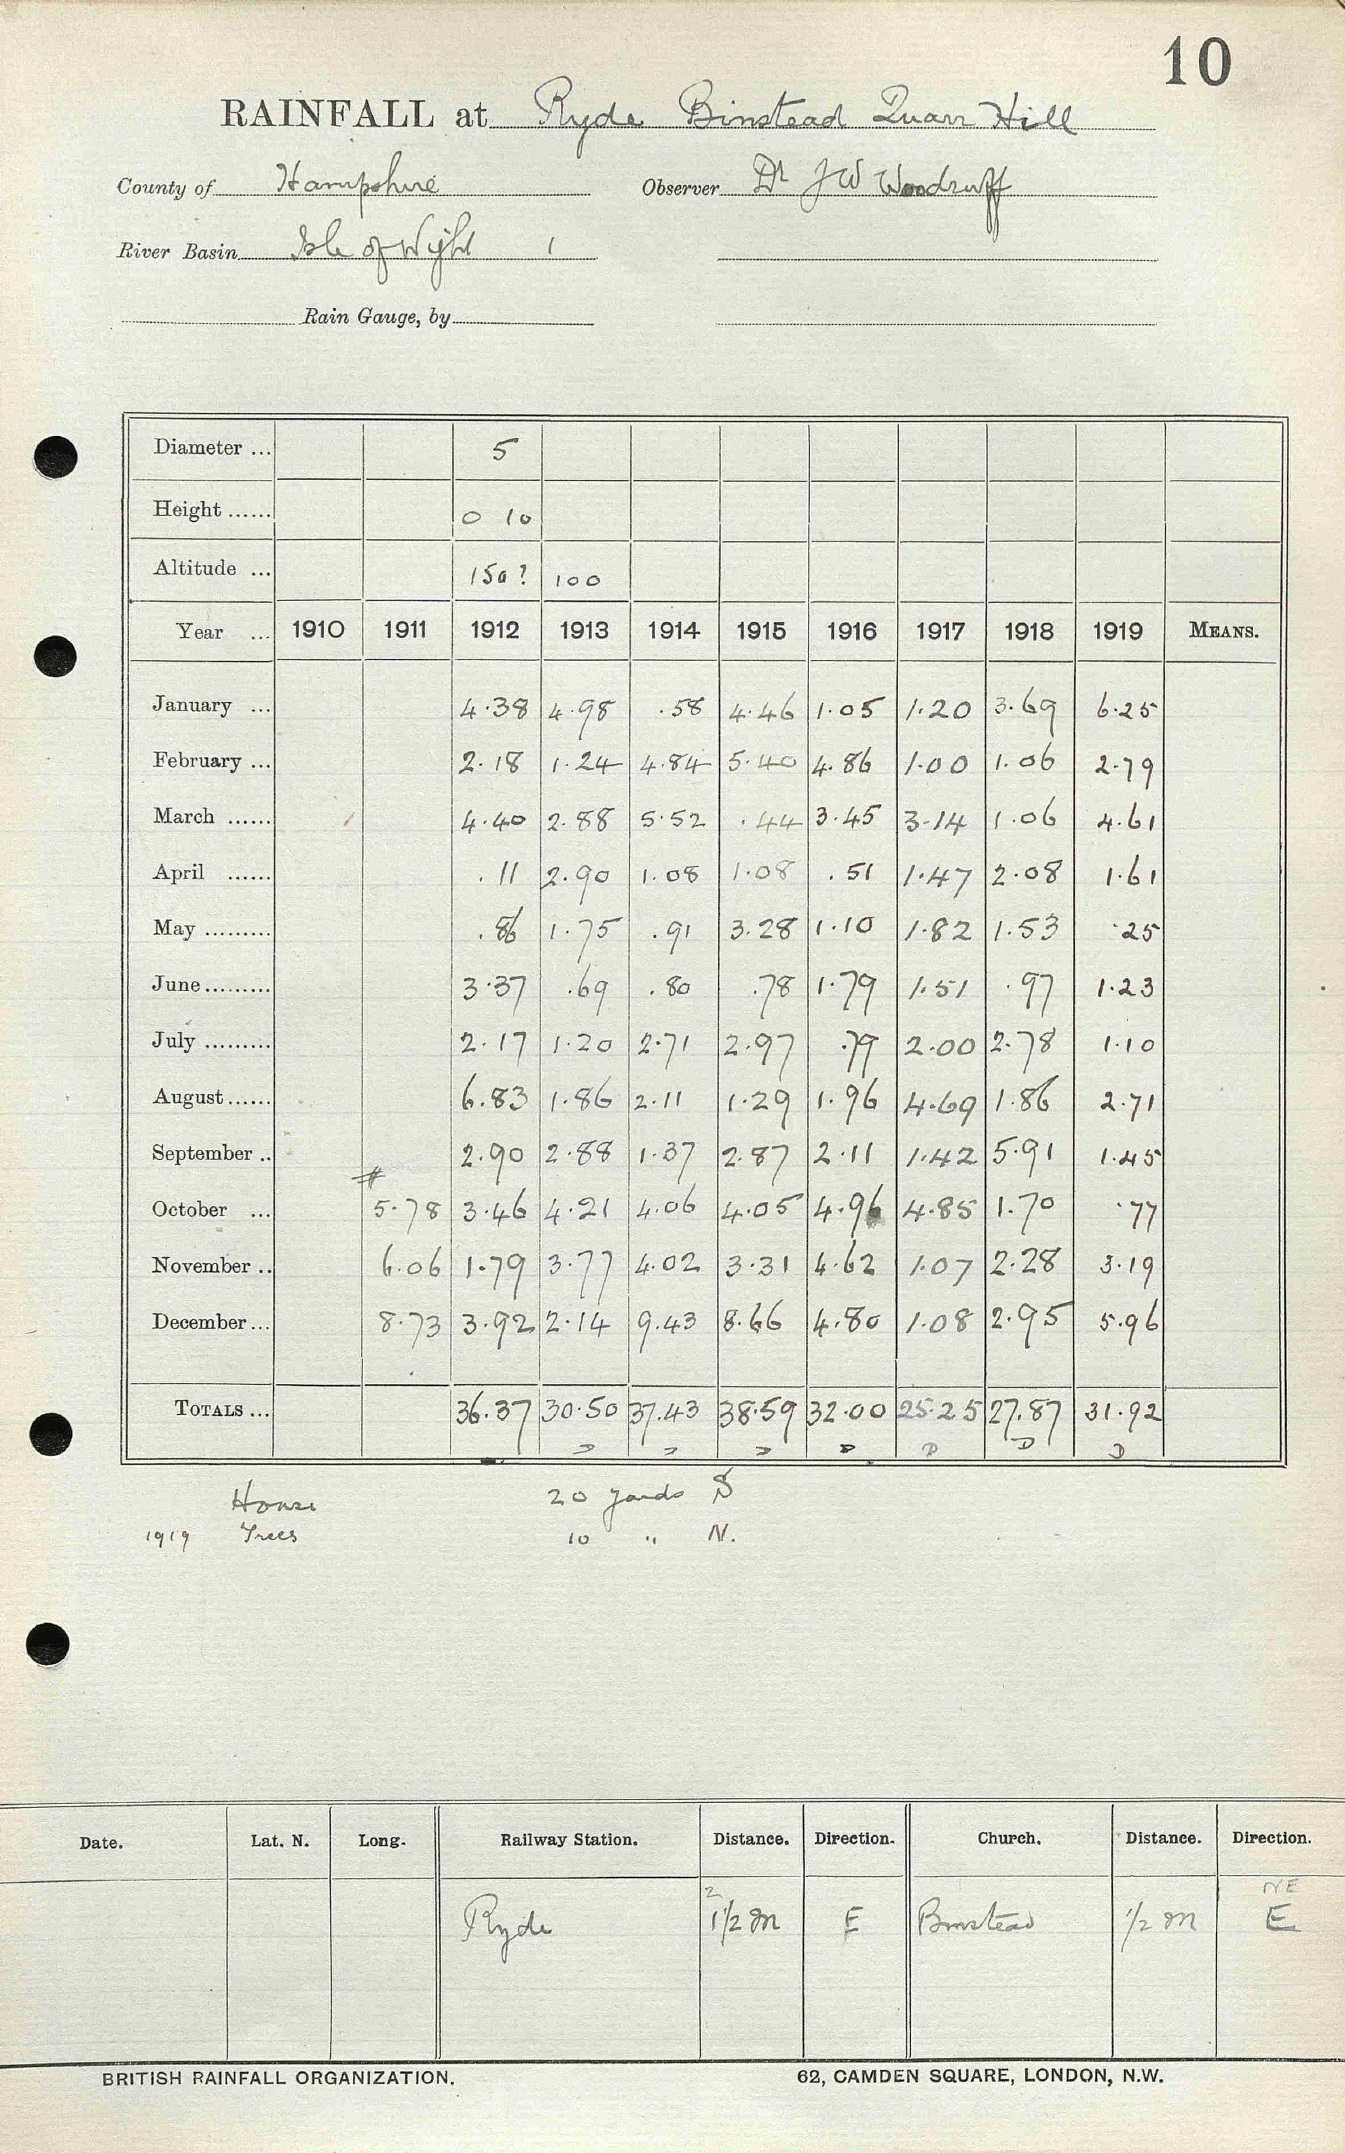 10
RAINFALL at Ryde Binstead Quarr Hill
County of Hampshire Observer Dr J W Woodruff
River Basin Isle of Wight 1
Rain Gauge, by
Diameter ... 5
Height ...... 0 10
Altitude ... 150? 100
Year ... 1910 1911 1912 1913 1914 1915 1916 1917 1918 1919 MEANS.
January ... 4.38 4.98 .58 4.46 1.05 1.20 3.69 6.25
February ... 2.18 1.24 4.84 5.40 4.86 1.00 1.06 2.79
March ...... 4.40 2.88 5.52 .44 3.45 3.14 1.06 4.61
April ...... .11 2.90 1.08 1.08 .51 1.47 2.08 1.61
May ......... .86 1.75 .91 3.28 1.10 1.82 1.53 .25
June ......... 3.37 .69 .80 .78 1.79 1.51 .97 1.23
July ......... 2.17 1.20 2.71 2.97 .79 2.00 2.78 1.10
August ...... 6.83 1.86 2.11 1.29 1.96 4.69 1.86 2.71
September .. 2.90 2.88 1.37 2.87 2.11 1.42 5.91 1.45
#
October ... 5.78 3.46 4.21 4.06 4.05 4.96 4.85 1.70 .77
November .. 6.06 1.79 3.77 4.02 3.31 4.62 1.07 2.28 3.19
December ... 8.73 3.92 2.14 9.43 8.66 4.80 1.08 2.95 5.96
TOTALS ... 36.37 30.50 37.43 38.59 32.00 25.25 27.87 31.92
D D D D D D D
House 20 yards S
1919 Trees 10 " N.
Date. Lat. N. Long. Railway Station. Distance. Direction. Church. Distance. Direction.
2 NE
Ryde 1½ m E Binstead ½ m E
BRITISH RAINFALL ORGANIZATION. 62, CAMDEN SQUARE, LONDON, N.W.